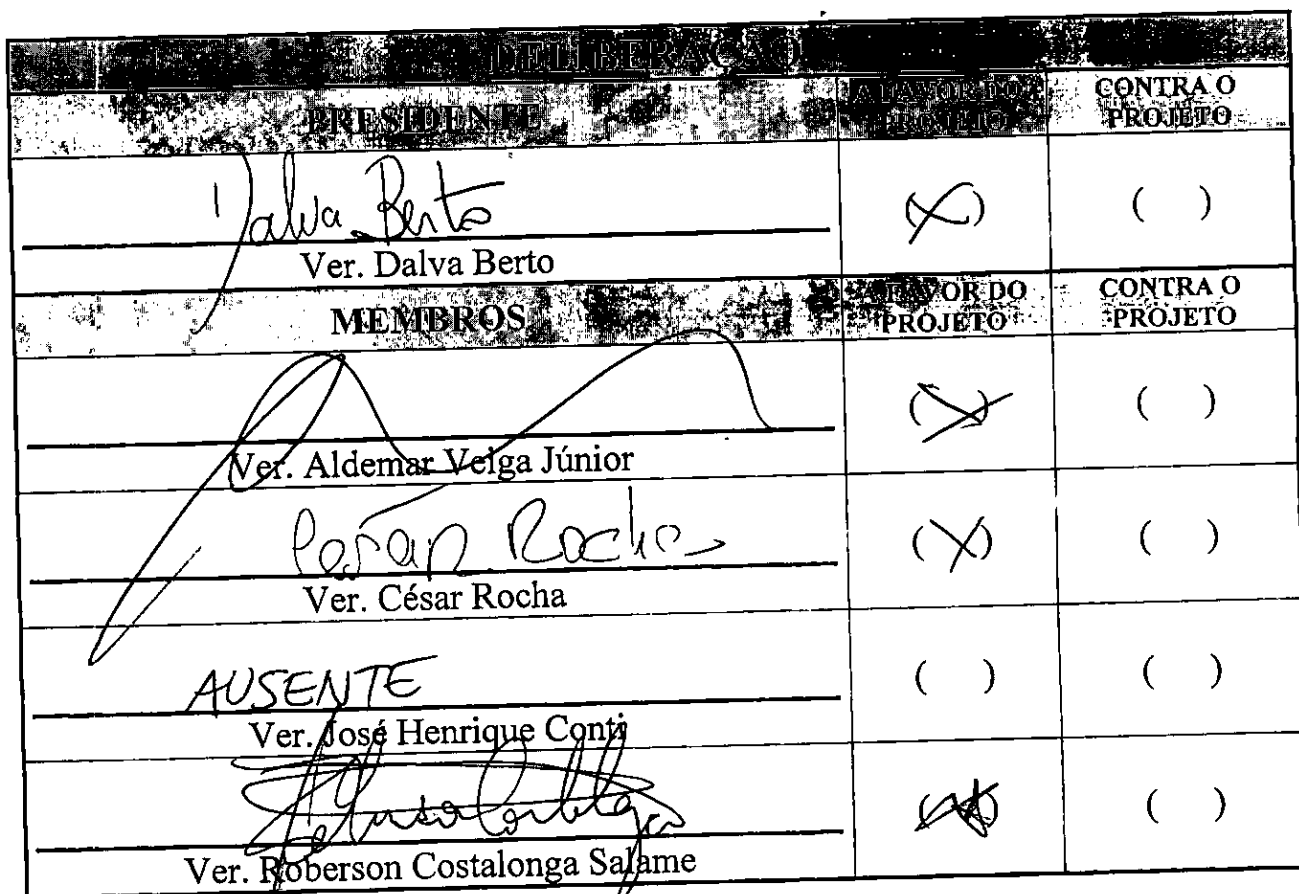 DELIBERAÇÃO
PRESIDENTE
A FAVOR DO PROJETO
CONTRA O PROJETO
Dalva Berto
(X)
( )
Ver. Dalva Berto
MEMBROS
A FAVOR DO PROJETO
CONTRA O PROJETO
(X)
( )
Ver. Aldemar Veiga Júnior
Rocha
(X)
( )
Ver. César Rocha
AUSENTE
( )
( )
Ver. José Henrique Conti
(X)
( )
Ver. Roberson Costalonga Salame